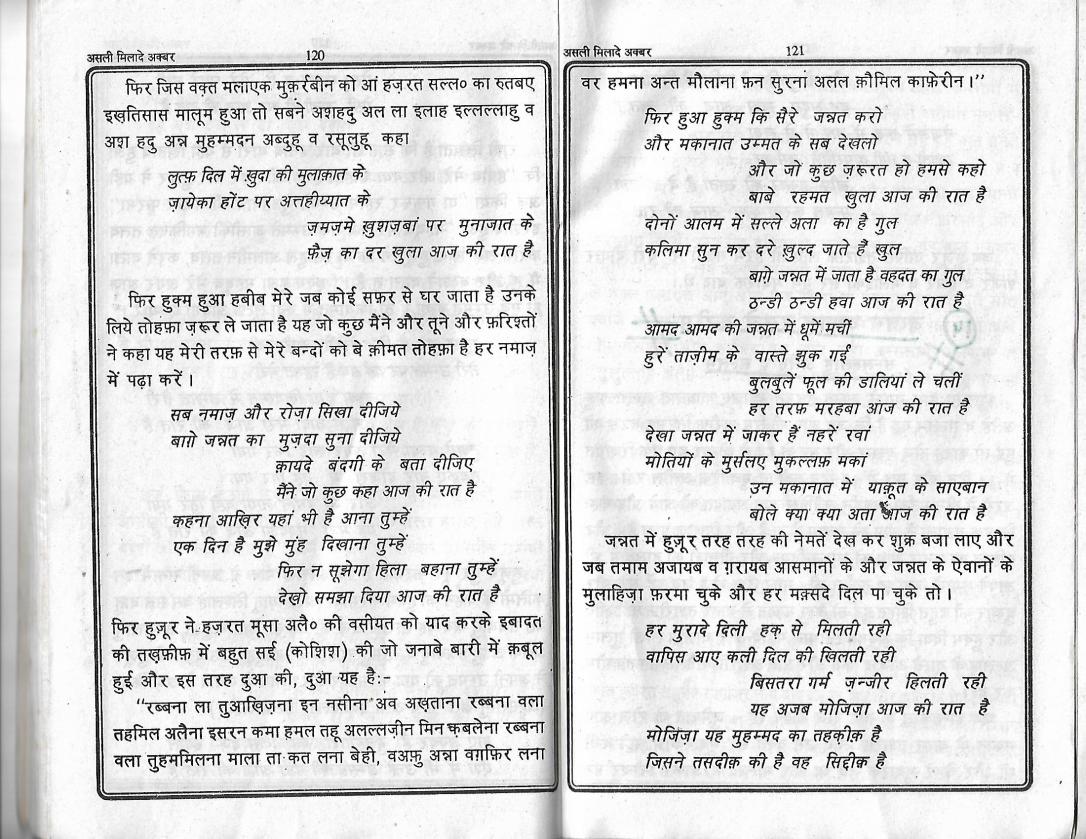 असली मिलादे अक्बर
120
फिर जिस वक़्त मलाएक मुक़र्रबीन को आं हज़रत सल्ल० का रुतबए
इख़तिसास मालूम हुआ तो सबने अशहदु अल ला इलाह इल्लल्लाहु व
अश हदु अन्न मुहम्मदन अब्दुहू व रसूलुहू कहा
लुत्फ़ दिल में ख़ुदा की मुलाक़ात के
ज़ायेका होंट पर अत्तहीय्यात के
ज़मज़मे ख़ुशज़बां पर मुनाजात के
फ़ैज़ का दर खुला आज की रात है
फिर हुक्म हुआ हबीब मेरे जब कोई सफ़र से घर जाता है उनके
लिये तोहफ़ा ज़रूर ले जाता है यह जो कुछ मैंने और तूने और फ़रिश्तों
ने कहा यह मेरी तरफ़ से मेरे बन्दों को बे क़ीमत तोहफ़ा है हर नमाज़
में पढ़ा करें।
सब नमाज़ और रोज़ा सिखा दीजिये
बाग़े जन्नत का मुज़दा सुना दीजिये
क़ायदे बंदगी के बता दीजिए
मैंने जो कुछ कहा आज की रात है
कहना आख़िर यहां भी है आना तुम्हें
एक दिन है मुझे मुंह दिखाना तुम्हें
फिर न सूझेगा हिला बहाना तुम्हें
देखो समझा दिया आज की रात है
फिर हुज़ूर ने हज़रत मूसा अलै० की वसीयत को याद करके इबादत
की तख़फ़ीफ़ में बहुत सई (कोशिश) की जो जनाबे बारी में क़बूल
हुई और इस तरह दुआ की, दुआ यह है:-
“रब्बना ला तुआखिज़ना इन नसीना अव अख़ताना रब्बना वला
तहमिल अलैना इसरन कमा हमल तहू अलल्लज़ीन मिन क़बलेना रब्बना
वला तुहममिलना माला ता-कत लना बेही, वअफ़ु अन्ना वग़फ़िर लना
असली मिलादे अक्बर
121
वर हमना अन्त मौलाना फ़न सुरनां अलल क़ौमिल काफ़ेरीन।”
फिर हुआ हुक्म कि सैरे जन्नत करो
और मकानात उम्मत के सब देखलो
और जो कुछ ज़रूरत हो हमसे कहो
बाबे रहमत खुला आज की रात है
दोनों आलम में सल्ले अला का है गुल
कलिमा सुन कर दरे ख़ुल्द जाते हैं खुल
बाग़े जन्नत में जाता है वहदत का गुल
ठन्डी ठन्डी हवा आज की रात है
आमद आमद की जन्नत में धूमें मचीं
हुरें ताज़ीम के वास्ते झुक गईं
बुलबुलें फूल की डालियां ले चलीं
हर तरफ़ मरहबा आज की रात है
देखा जन्नत में जाकर हैं नहरें रवां
मोतियों के मुर्सलए मुकल्लफ़ मकां
उन मकानात में याक़ूत के साएबान
बोले क्या क्या अता आज की रात है
जन्नत में हुज़ूर तरह तरह की नेमतें देख कर शुक्र बजा लाए और
जब तमाम अजायब व ग़रायब आसमानों के और जन्नत के ऐवानों के
मुलाहिज़ा फ़रमा चुके और हर मक़्सदे दिल पा चुके तो।
हर मुरादे दिली हक़ से मिलती रही
वापिस आए कली दिल की खिलती रही
बिसतरा गर्म ज़न्जीर हिलती रही
यह अजब मोजिज़ा आज की रात है
मोजिज़ा यह मुहम्मद का तहक़ीक़ है
जिसने तसदीक़ की है वह सिद्दीक़ है